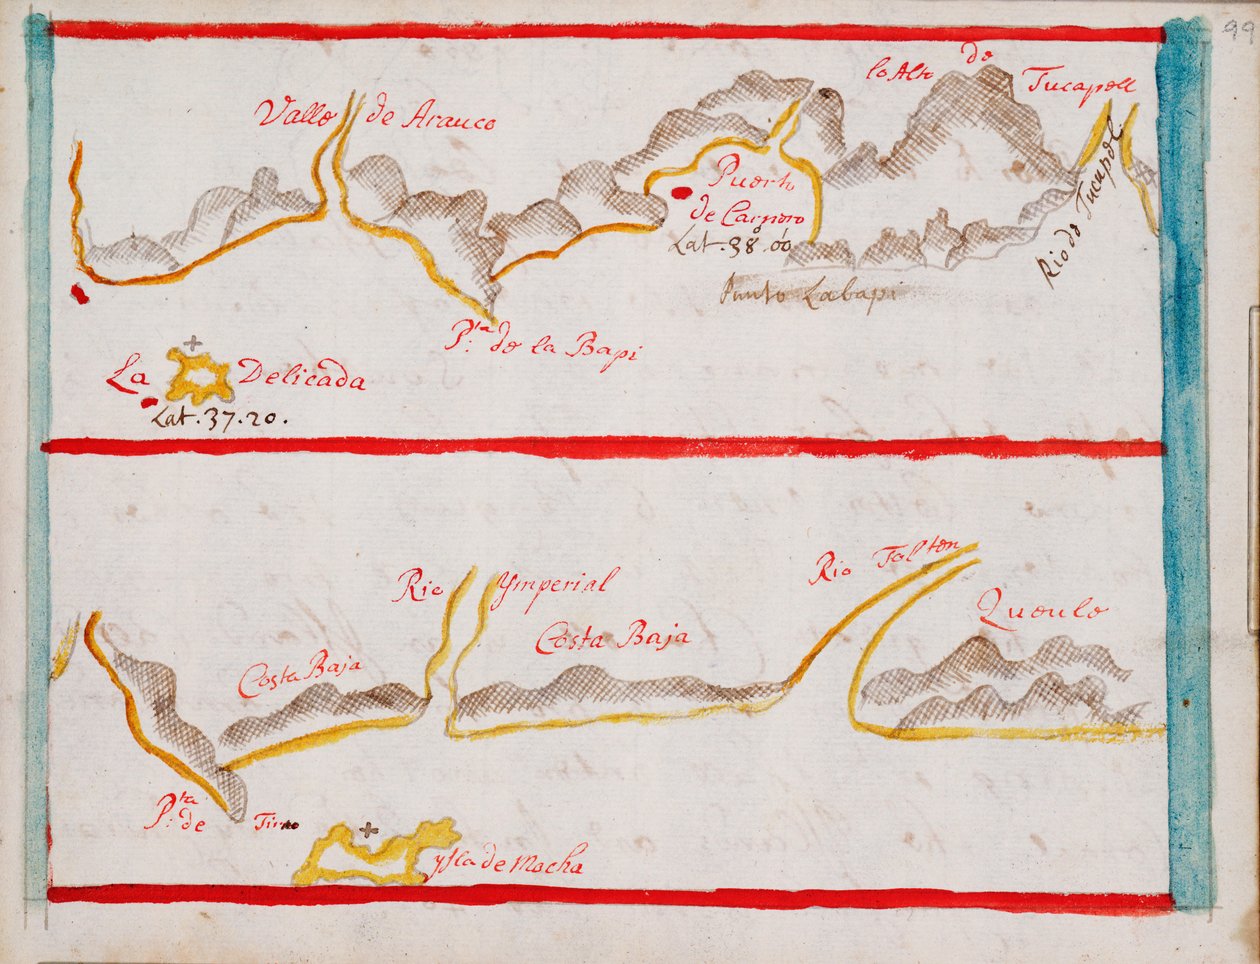 99
Valle de Arauco
lo Alto de Tucapell
Puerto
de Carnero
Lat. 38.00
Rio de Tucapel
Punto Labapi
P.ta de la Bapi
La Delicada
Lat. 37.20.
Rio Ymperial
Rio Talten
Costa Baja
Costa Baja
Queule
P.ta de Tirua
ysla de Mocha